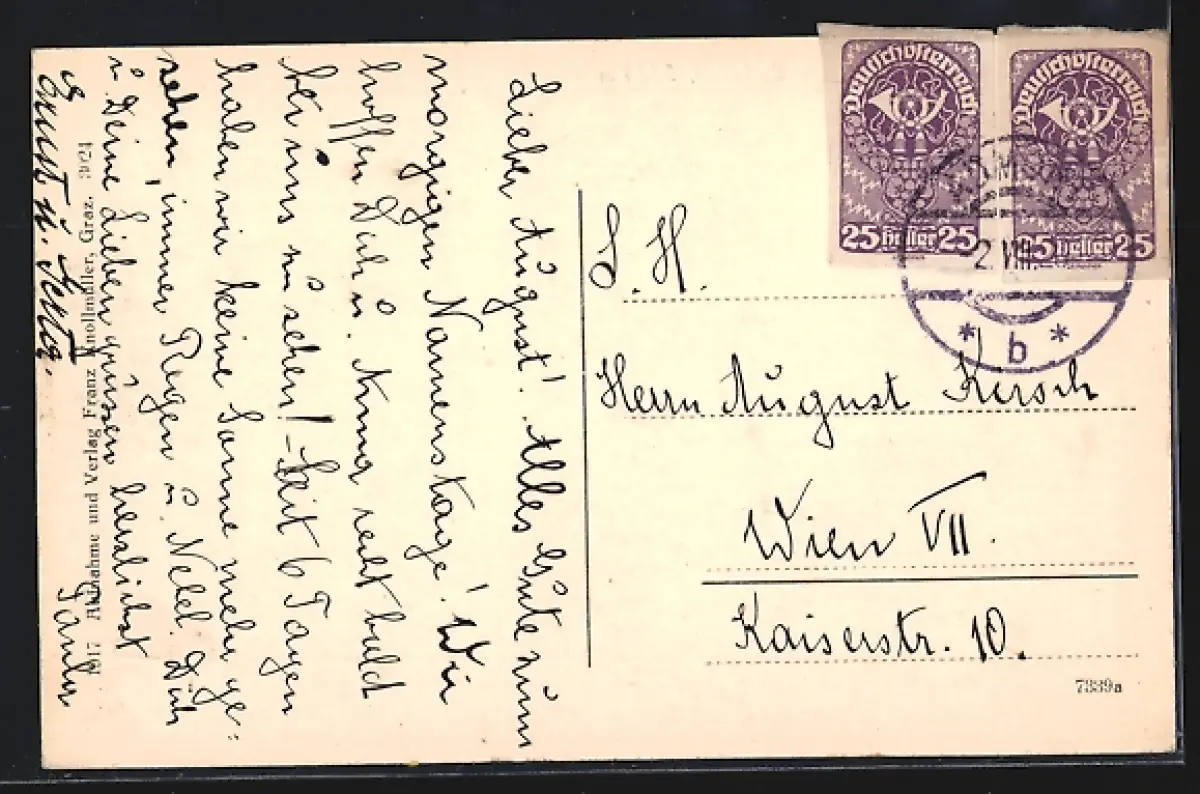 Lieber August! Alles Gute zum
morgigen Namenstage! Wir
hoffen Dich u. Anna recht bald
bei uns zu sehen! - Seit 6 Tagen
haben wir keine Sonne mehr ge-
sehen, immer Regen u. Nebel. Dich
u. Deine Lieben grüssen herzlichst
Ernst u.
1917 Aufnahme und Verlag Franz Knollmüller, Graz. 3024
Deutschösterreich
25 Heller 25
Deutschösterreich
25 Heller 25
2. VIII
* b *
S. H.
Herrn August Kirsch
Wien VII.
Kaiserstr. 10.
7339a